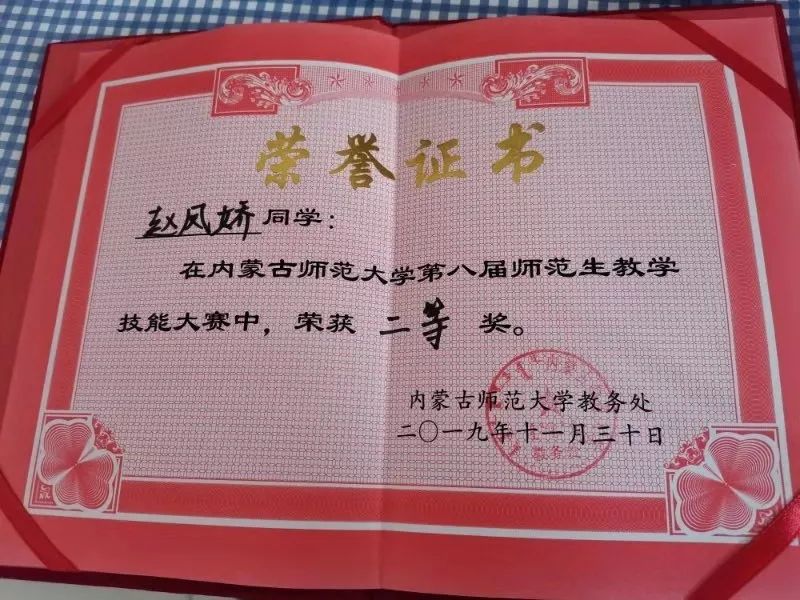 荣誉证书
赵凤娇同学：
在内蒙古师范大学第八届师范生教学
技能大赛中，荣获 二等 奖。
内蒙古师范大学教务处
二〇一九年十一月三十日
教务处